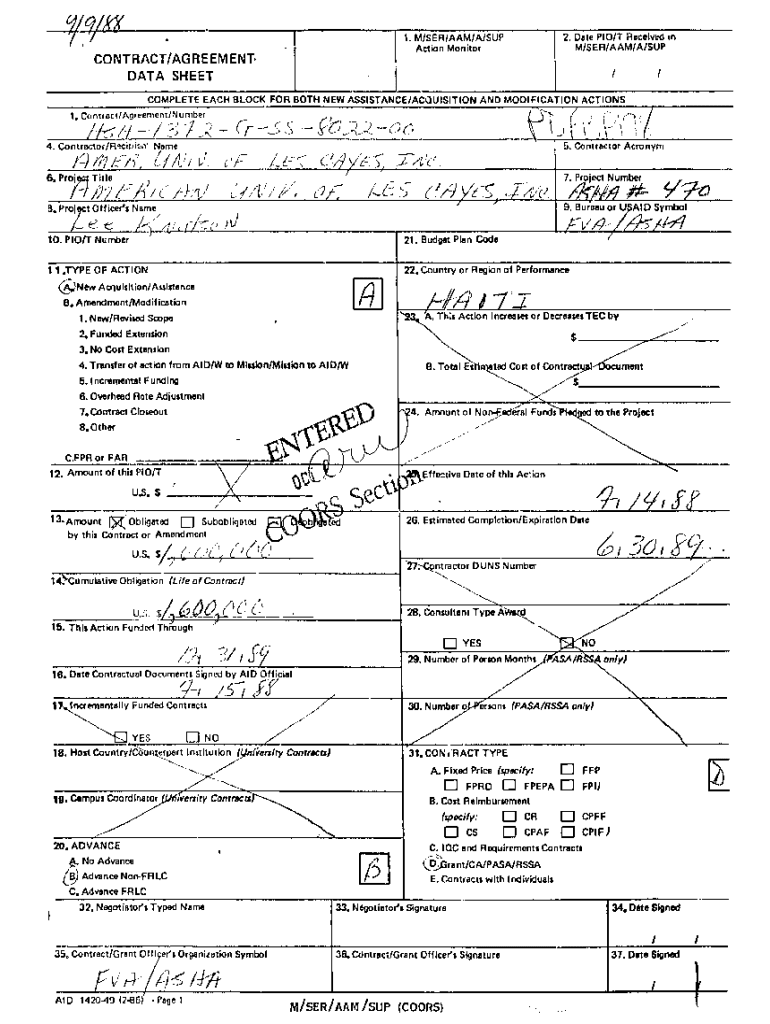 9/9/88
CONTRACT/AGREEMENT
DATA SHEET
1. M/SER/AAM/A/SUP
Action Monitor
2. Date PIO/T Received in
M/SER/AAM/A/SUP
/ /
COMPLETE EACH BLOCK FOR BOTH NEW ASSISTANCE/ACQUISITION AND MODIFICATION ACTIONS
1. Contract/Agreement/Number
HSH-1372-G-SS-8022-00
4. Contractor/Recipient Name
AMER. UNIV. OF LES CAYES, INC.
5. Contractor Acronym
6. Project Title
AMERICAN UNIV. OF. LES CAYES, INC
7. Project Number
ASHA # 470
8. Project Officer's Name
Lee Knutson
9. Bureau or USAID Symbol
FVA/ASHA
10. PIO/T Number
21. Budget Plan Code
11. TYPE OF ACTION
A. New Acquisition/Assistance
A
B. Amendment/Modification
1. New/Revised Scope
2. Funded Extension
3. No Cost Extension
4. Transfer of action from AID/W to Mission/Mission to AID/W
5. Incremental Funding
6. Overhead Rate Adjustment
7. Contract Closeout
8. Other
C. FPR or FAR
22. Country or Region of Performance
HAITI
23. A. This Action Increases or Decreases TEC by
$
B. Total Estimated Cost of Contractual Document
$
24. Amount of Non-Federal Funds Pledged to the Project
ENTERED
COORS Section
12. Amount of this PIO/T
U.S. $
25. Effective Date of this Action
7, 14, 88
13. Amount Obligated Subobligated Deobligated
by this Contract or Amendment
U.S. $
26. Estimated Completion/Expiration Date
6, 30, 89
14. Cumulative Obligation (Life of Contract)
U.S. $ 1,600,000
27. Contractor DUNS Number
15. This Action Funded Through
12, 31, 89
28. Consultant Type Award
YES NO
16. Date Contractual Documents Signed by AID Official
7, 15, 88
29. Number of Person Months (PASA/RSSA only)
17. Incrementally Funded Contracts
YES NO
30. Number of Persons (PASA/RSSA only)
18. Host Country/Counterpart Institution (University Contracts)
19. Campus Coordinator (University Contracts)
31. CONTRACT TYPE
A. Fixed Price (specify: FFP
FPRD FPEPA FPI)
D
B. Cost Reimbursement
(specify: CR CPFF
CS CPAF CPIF)
C. IQC and Requirements Contracts
D. Grant/CA/PASA/RSSA
E. Contracts with Individuals
20. ADVANCE
A. No Advance
B. Advance Non-FRLC
C. Advance FRLC
B
32. Negotiator's Typed Name
33. Negotiator's Signature
34. Date Signed
/ /
35. Contract/Grant Officer's Organization Symbol
FVA/ASHA
36. Contract/Grant Officer's Signature
37. Date Signed
/ /
AID 1420-49 (2-86) - Page 1
M/SER/AAM/SUP (COORS)